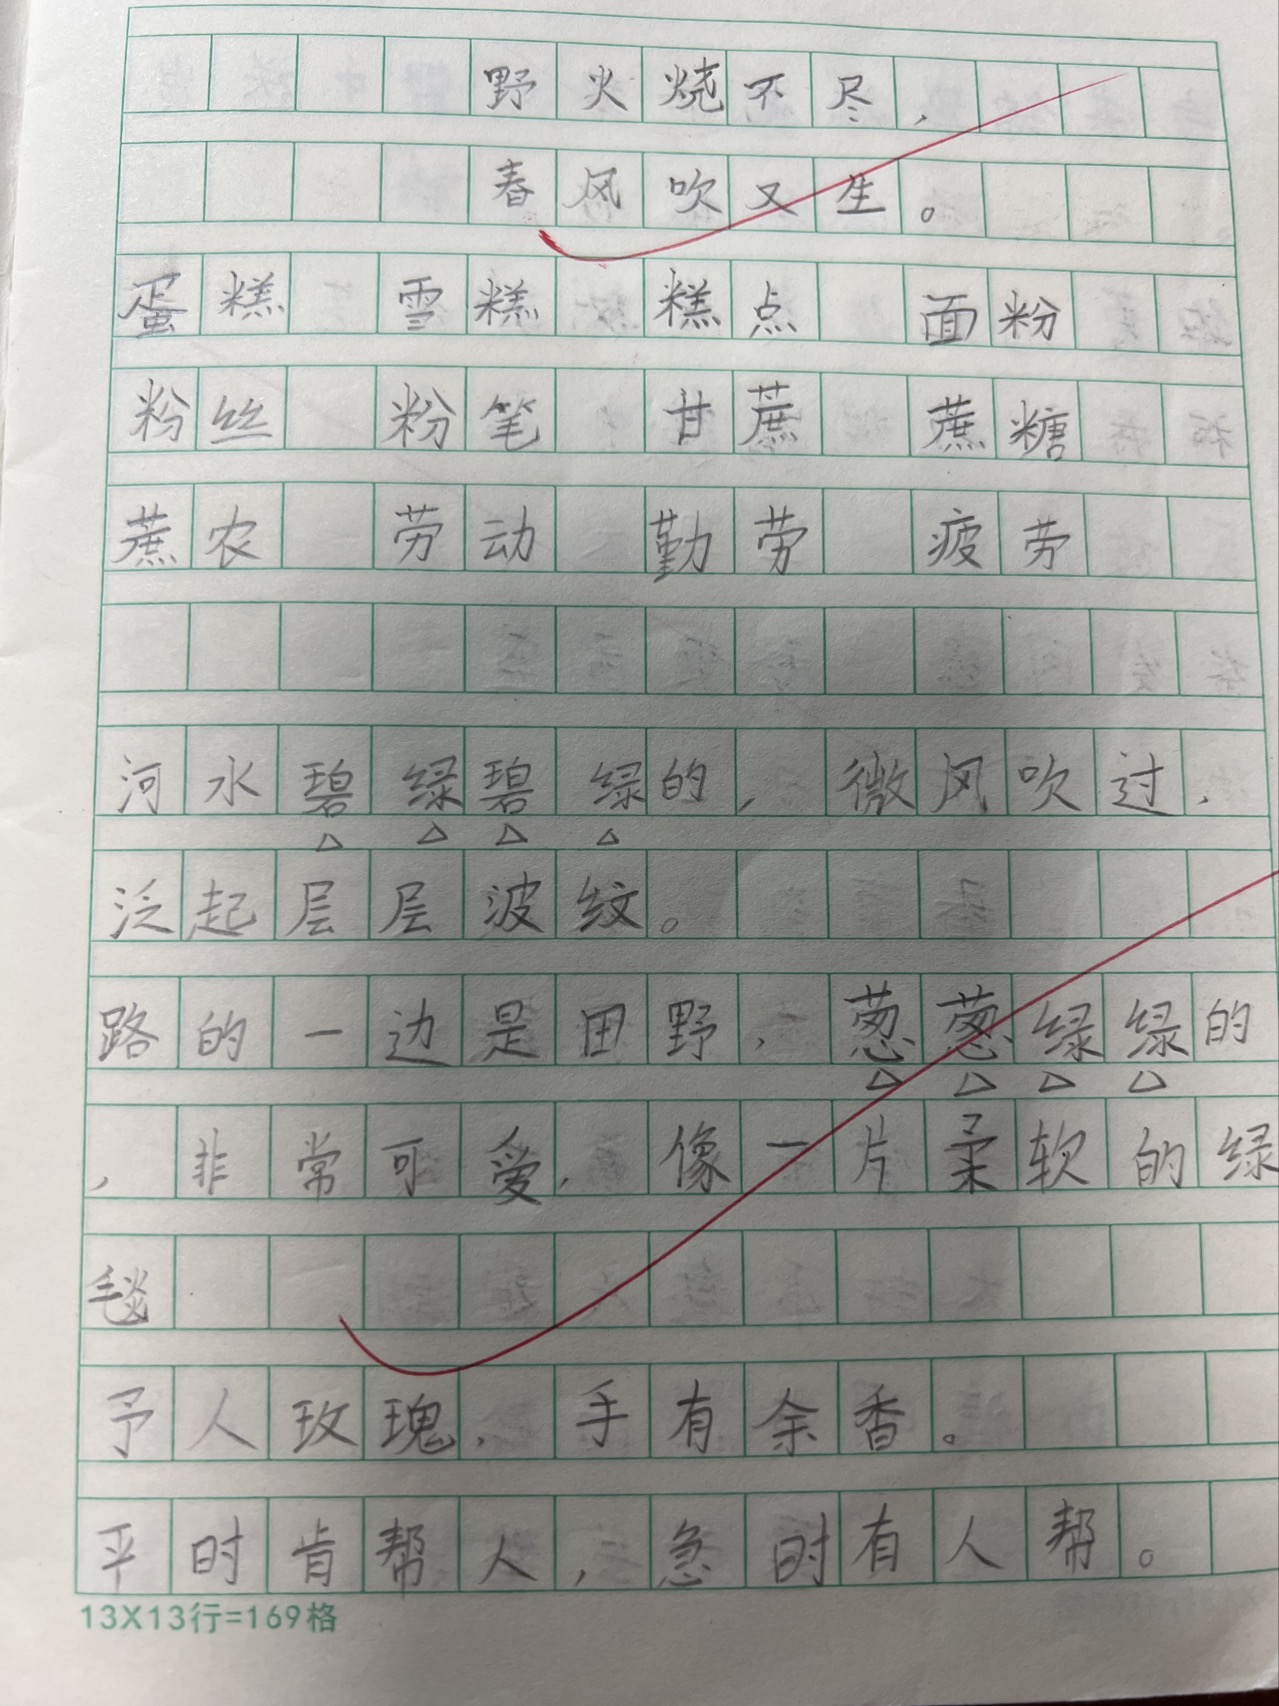 野火烧不尽，
春风吹又生。
蛋糕 雪糕 糕点 面粉
粉丝 粉笔 甘蔗 蔗糖
蔗农 劳动 勤劳 疲劳
河水碧绿碧绿的，微风吹过，
泛起层层波纹。
路的一边是田野，葱葱绿绿的
，非常可爱，像一片柔软的绿
毯
予人玫瑰，手有余香。
平时肯帮人，急时有人帮。
13X13行=169格